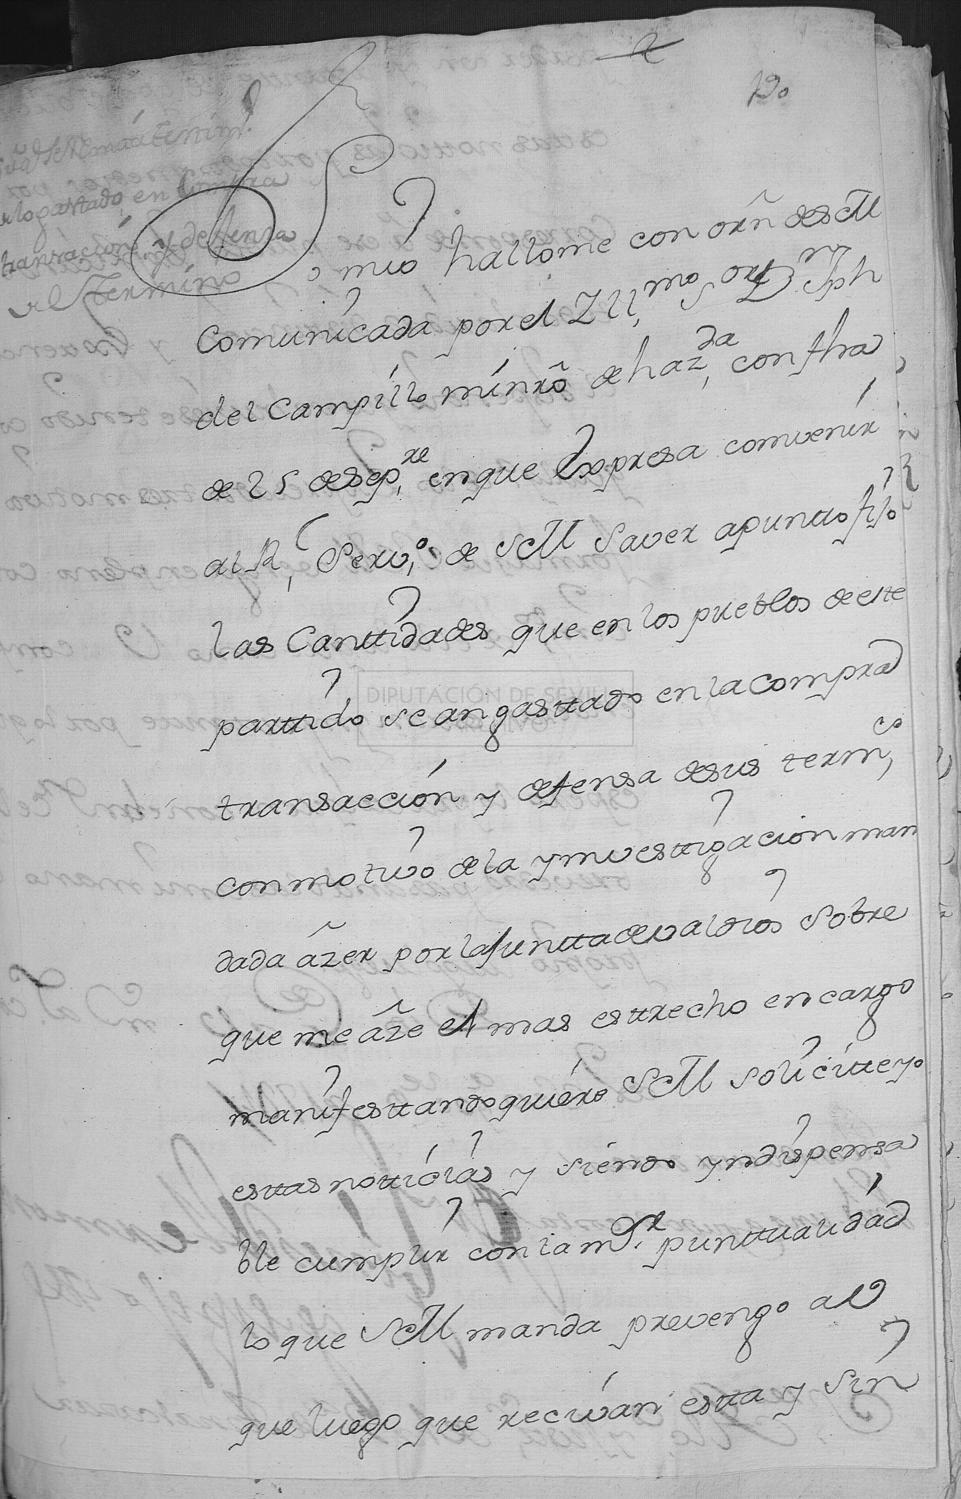 130
lo gastado en Compra
transación y defensa
del Termino
S.r mio hallome con orñ de S M
Comunicada por el Ill.mo S.or Dn Jph
del Campillo minrõ de haz.da, con fha
de 25 de Sep.re, en que Expresa comvenir
al R.l Serv.o, de S M Saver apunto fijo
las Canttidades que en los pueblos de este
parttido se an gasttado en la Compra
DIPUTACIÓN DE SEVILLA
transaccion y defensa de sus term.os
con motivo de la ymvesttigacion man
dada ãzer por la Juntta de valdios Sobre
que me ãze el mas esttrecho encargo
manifesttando quiere S M Solicitte yo
esttas notticias y siendo yndispensa
ble cumplir con la m.or punttualidad
lo que S M manda prevengo a V
que luego que recivan estta y Sin